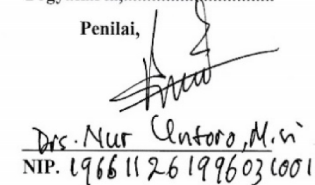 Penilai,
Drs. Nur Untoro, M.si
NIP. 196611261996031001